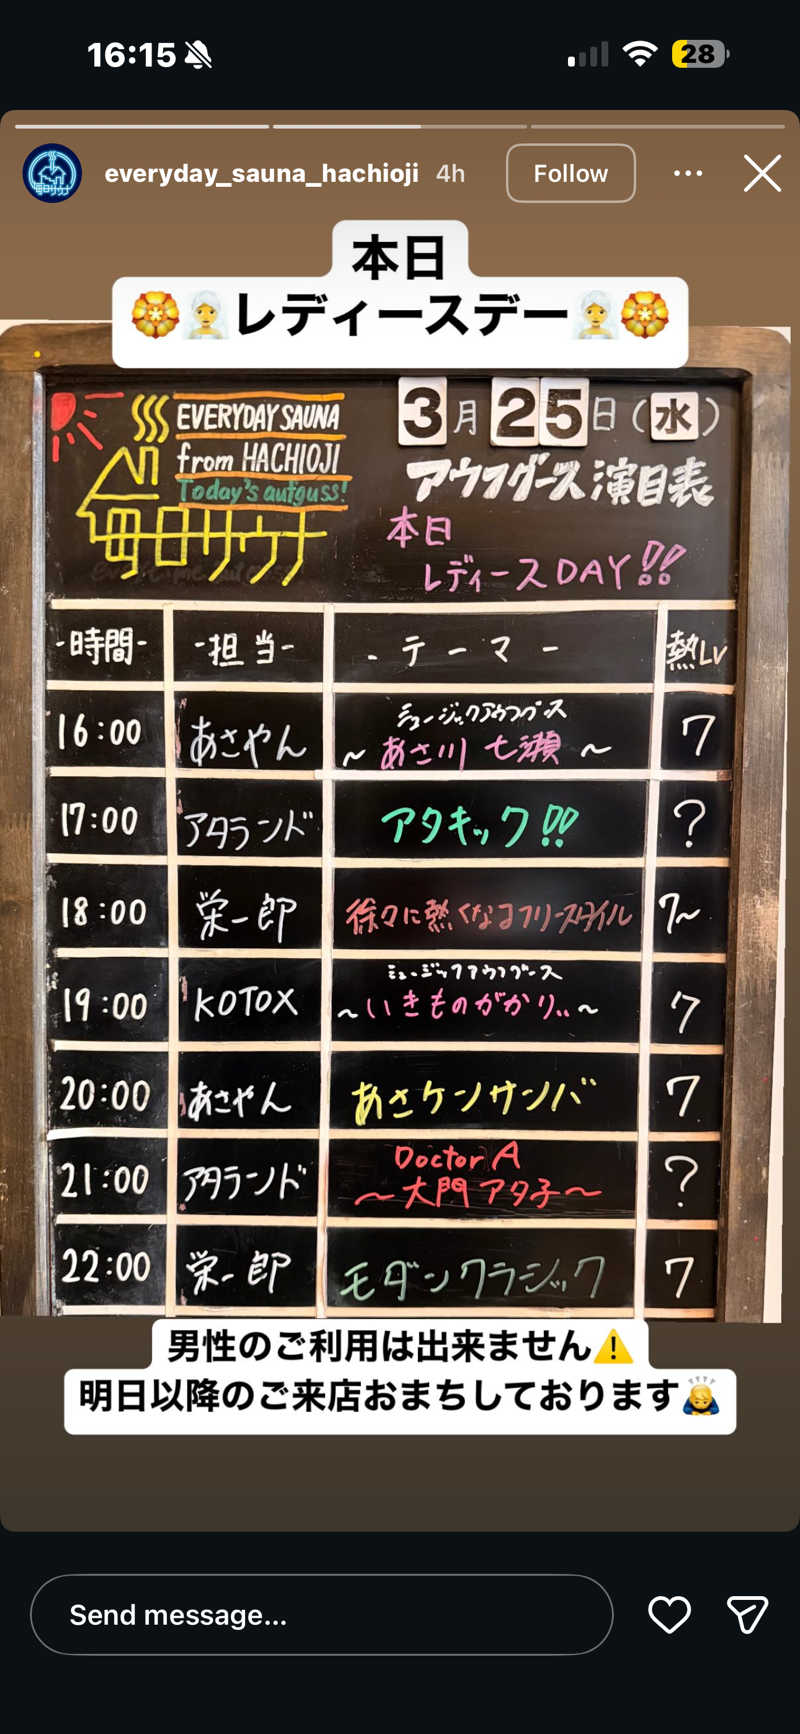 16:15
28
everyday_sauna_hachioji 4h
Follow
本日
🏵️👰レディースデー👰🏵️
EVERYDAY SAUNA
from HACHIOJI
Today's aufguss!
毎日サウナ
3月25日(水)
アウフグース演目表
本日
レディースDAY!!
-時間- -担当- -テーマ- 熱Lv
16:00 あさやん ミュージックアウフグース
~あさ川七瀬~ 7
17:00 アタランド アタキック!! ?
18:00 栄一郎 徐々に熱くなるフリースタイル 7~
19:00 KOTOX ミュージックアウフグース
~いきものがかり..~ 7
20:00 あさやん あさケンサンバ 7
21:00 アタランド Doctor A
~大門アタ子~ ?
22:00 栄一郎 モダンクラシック 7
男性のご利用は出来ません⚠️
明日以降のご来店おまちしております🙇
Send message...